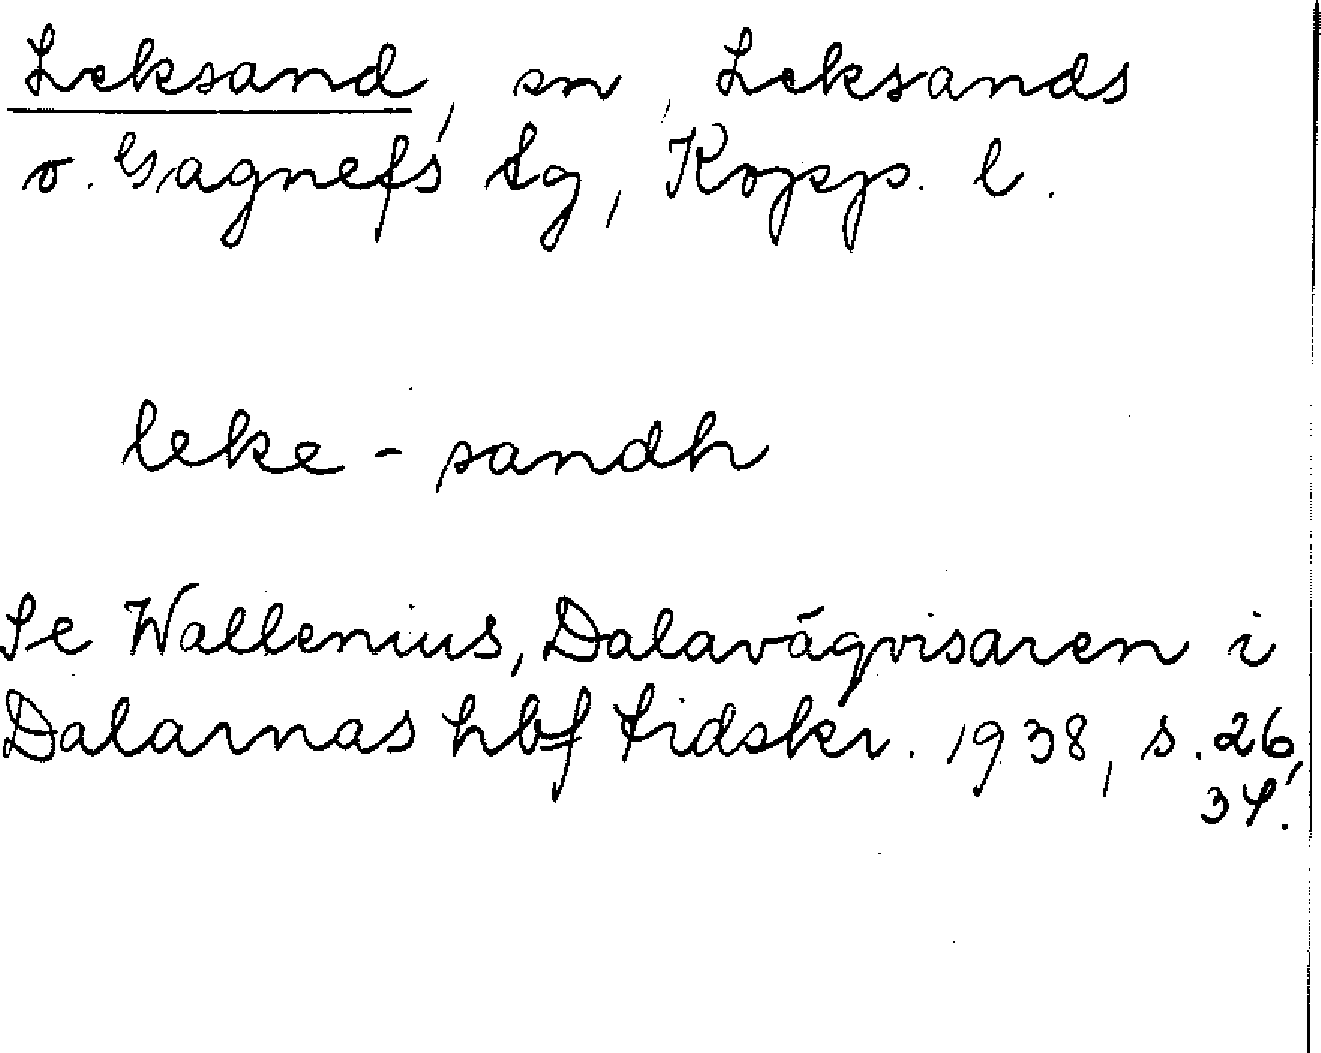 Leksand, sn, Leksands
o. Gagnefs tg, Kopp. l.
leke-sandh
Se Wallenius, Dalavägvisaren i
Dalarnas hbf tidskr. 1938, s. 26,
34.